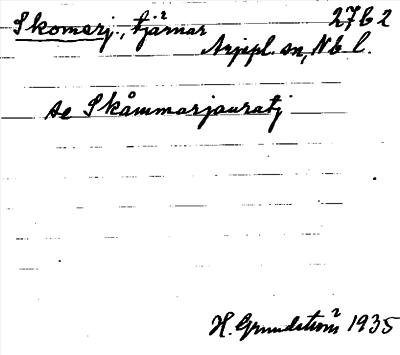 Skomarj., tjärnar 27 b 2
Arjepl. sn, Nb l.
se Skåmmarjauratj
H. Grundström 1935